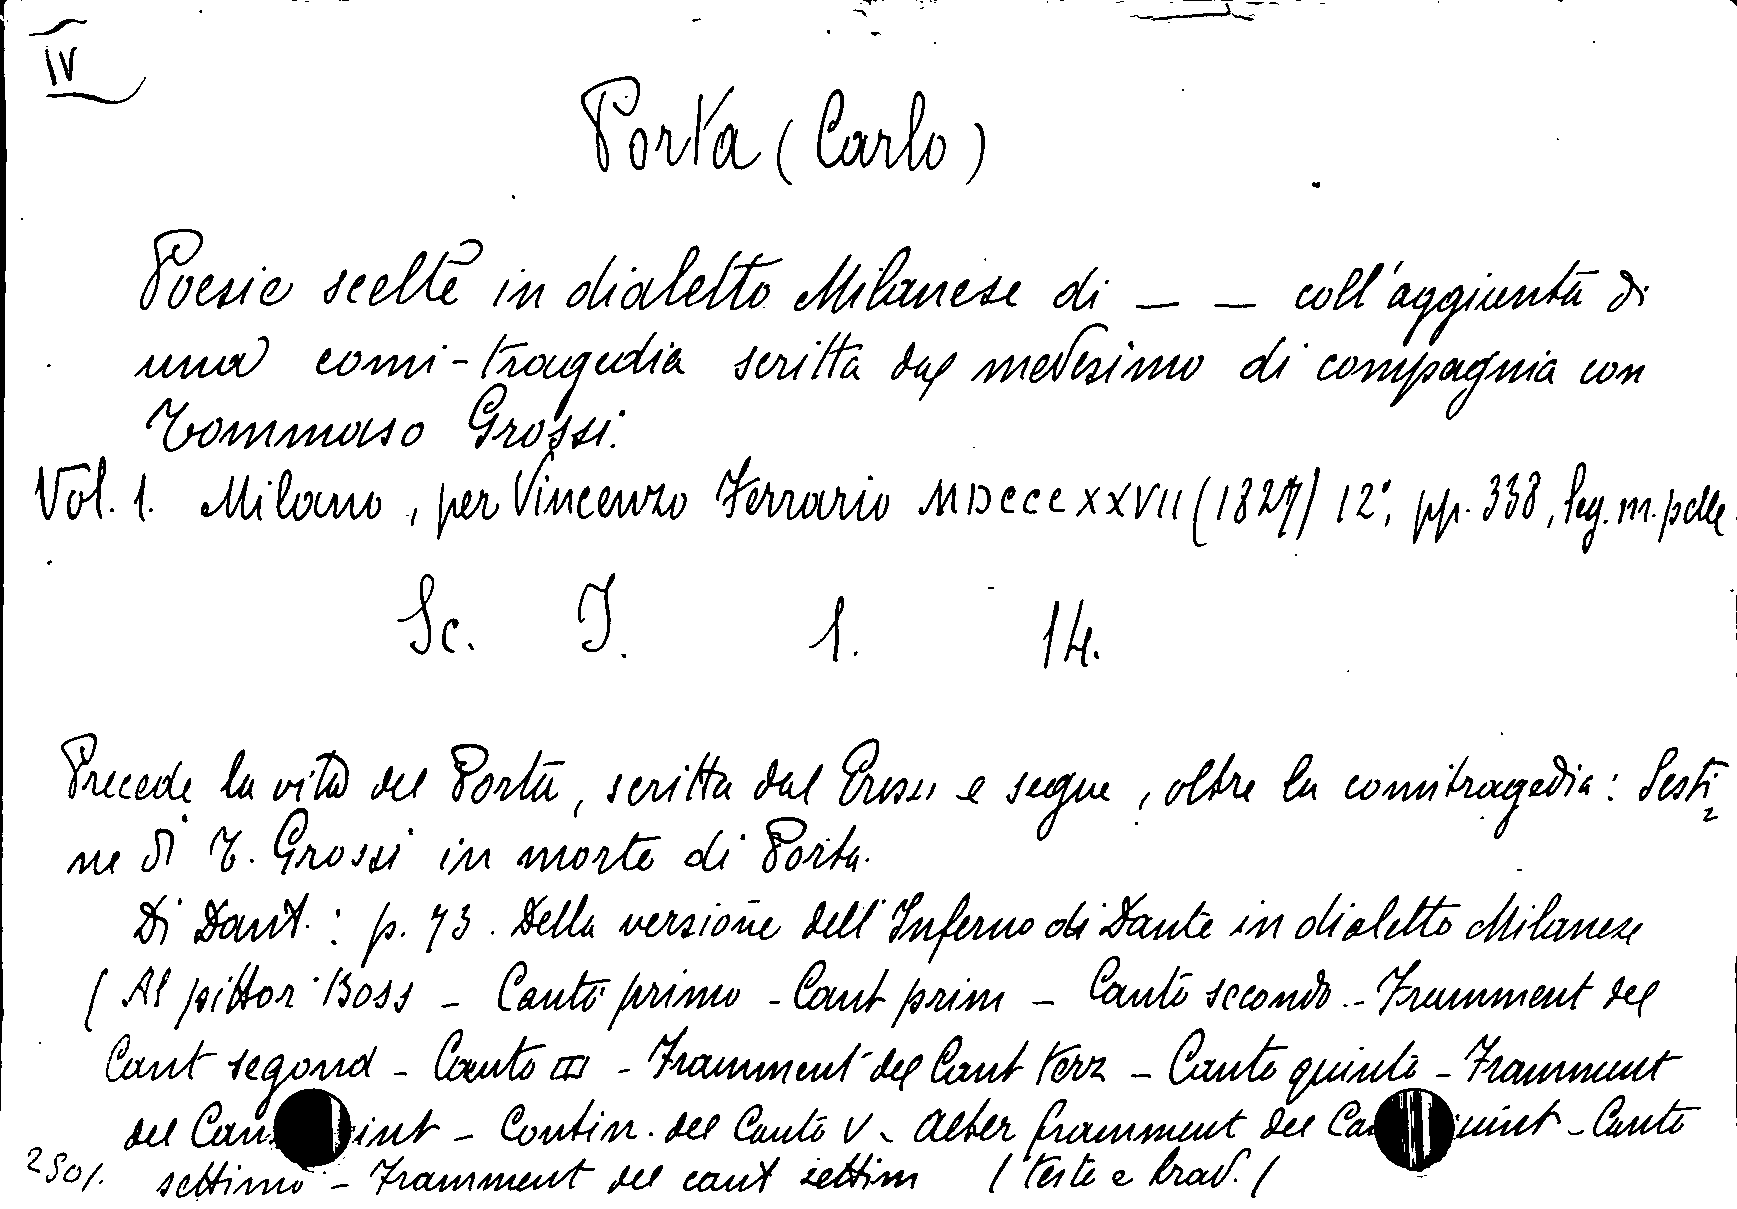 IV
Porta (Carlo)
Poesie scelte in dialetto Milanese di _ _ coll'aggiunta di
una comi-tragedia scritta dal medesimo di compagnia con
Tommaso Grossi.
Vol. 1. Milano, per Vincenzo Ferrario MDCCCXXVII (1827) 12°, pp. 338, leg. m. pelle.
Sc. I. 1. 14.
Precede la vita del Porta, scritta dal Grossi e segue, oltre la comitragedia: Sesti=
ne di T. Grossi in morte di Porta.
Di Dant.: p. 73. Della versione dell'Inferno di Dante in dialetto Milanese
(Al pittor Boss - Canto primo - Cant prim - Canto secondo - Framment del
Cant segond - Canto III - Framment del Cant terz - Canto quinto - Framment
del Can int - Contin. del Canto V - Alter framment del Ca uint - Canto
settimo - Framment del cant settim (testo e trad.)